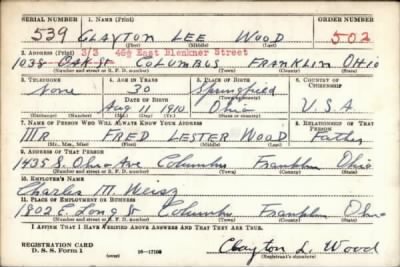 SERIAL NUMBER 1. NAME (Print) ORDER NUMBER
539 CLAYTON LEE WOOD 502
(First) (Middle) (Last)
2. ADDRESS (Print) 3/3 469 East Blenkner Street
1038 OAK St COLUMBUS FRANKLIN OHIO
(Number and street or R. F. D. number) (Town) (County) (State)
3. TELEPHONE 4. AGE IN YEARS 5. PLACE OF BIRTH 6. COUNTRY OF CITIZENSHIP
None 30 Springfield
DATE OF BIRTH (Town or county)
Aug 11 1910 Ohio U.S.A
(Exchange) (Number) (Mo.) (Day) (Yr.) (State or country)
7. NAME OF PERSON WHO WILL ALWAYS KNOW YOUR ADDRESS 8. RELATIONSHIP OF THAT PERSON
MR FRED LESTER WOOD Father
(Mr., Mrs., Miss) (First) (Middle) (Last)
9. ADDRESS OF THAT PERSON
1435 S. Ohio Ave Columbus Franklin Ohio
(Number and street or R. F. D. number) (Town) (County) (State)
10. EMPLOYER'S NAME
Charles M. Weisz
11. PLACE OF EMPLOYMENT OR BUSINESS
1802 E Long St Columbus Franklin Ohio
(Number and street or R. F. D. number) (Town) (County) (State)
I AFFIRM THAT I HAVE VERIFIED ABOVE ANSWERS AND THAT THEY ARE TRUE.
REGISTRATION CARD
D. S. S. Form 1 16-17105 Clayton L. Wood